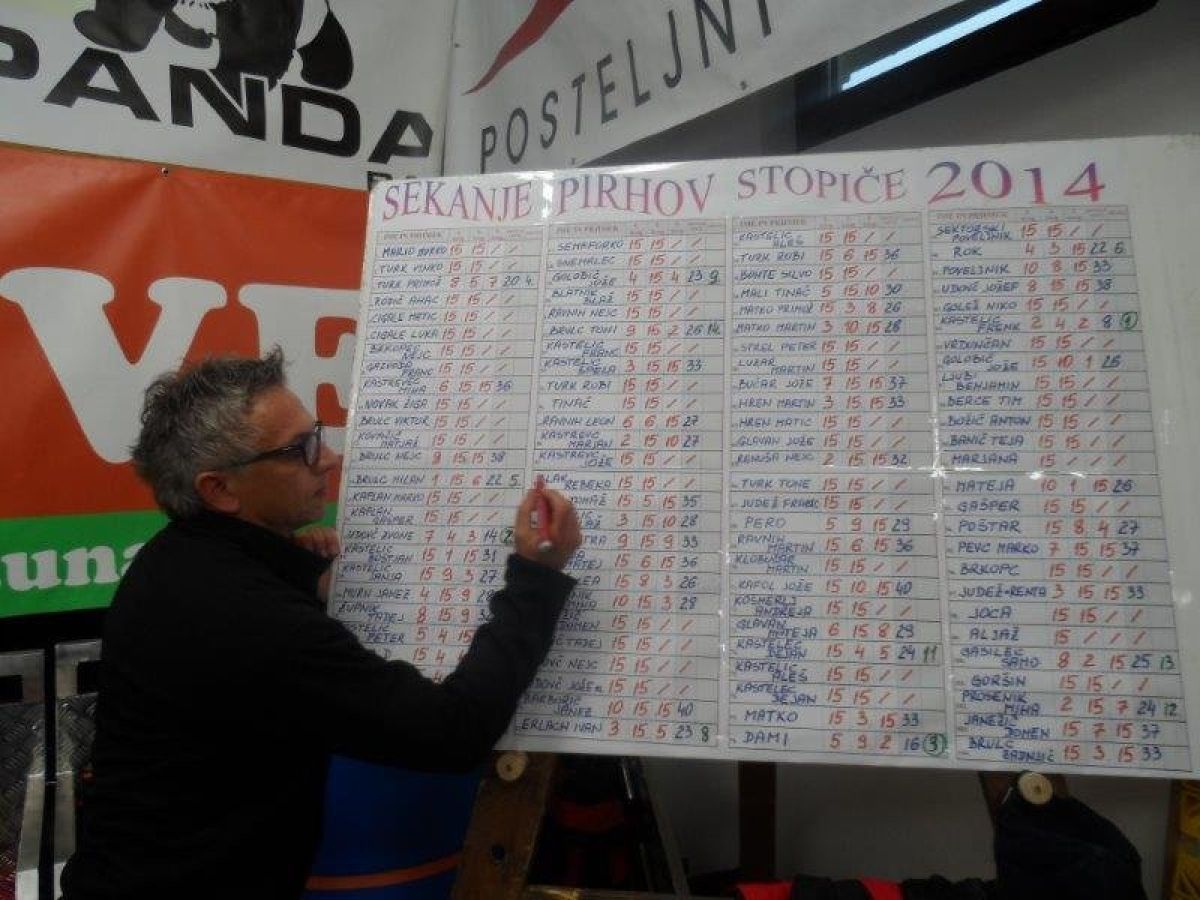 PANDA
POSTELJNI
VE
una
SEKANJE PIRHOV STOPIČE 2014
IME IN PRIIMEK
MARVO BORKO 15 15 / /
TURK VINKO 15 15 / /
TURK PRIMOŽ 8 5 7 20 4.
RODIČ AHAC 15 15 / /
CIGALE METIC 15 15 / /
CIGALE LUKA 15 15 / /
NEJC 15 15 / /
FRANC 15 15 / /
KASTREVEC MIHA 6 15 15 36
NOVAK ŽIGA 15 15 / /
BRULC VIKTOR 15 15 / /
MATJAŽ 15 15 / /
BRULC NEJC 8 15 15 38
BRULC MILAN 1 15 6 22 5.
KAPLAN MARKO 15 15 / /
KAPLAN GAŠPER 15 15 / /
UDOVČ ZVONE 7 4 3 14 2
KASTELIC BOSTJAN 15 1 15 31
KASTELIC ANJA 15 9 3 27
MURN JANEZ 4 15 9 28
ŽUPNIK TADEJ 8 15 9
PETER 5 4 15
15 4
IME IN PRIIMEK
SEMAFORKO 15 15 / /
SNEMALEC 15 15 / /
GOLOBIČ JOŽE 4 15 4 23 9.
BLATNIK BLAŽ 15 15 / /
RAVNIH NEJC 15 15 / /
BRULC TONI 9 15 2 26 14.
KASTELIC FRANC 15 15 / /
KASTELIC ŠPELA 3 15 15 33
TURK ROBI 15 15 / /
TINAČ 15 15 / /
RAVNIH LEON 6 6 15 27
KASTREVC MARJAN 2 15 10 27
KASTREVC JOŽE 15 15 / /
REBEKA 15 15 / /
OMAŽ 15 5 15 35
3 15 10 28
TRA 9 15 9 33
TEJ 15 6 15 36
EA 15 8 3 26
10 15 3 28
OMEN 15 15 / /
TADEJ 15 15 / /
NEJC 15 15 / /
UDOVČ JOŽE 15 15 / /
BARBORIČ JANEZ 10 15 15 40
ERLAH IVAN 3 15 5 23 8
IME IN PRIIMEK
KASTELIC ALEŠ 15 15 / /
TURK ROBI 15 6 15 36
BUHTE SILVO 15 15 / /
MALI TINAČ 5 15 10 30
MATKO PRIMOŽ 15 3 8 26
MATKO MARTIN 3 10 15 28
STREL PETER 15 15 / /
LUZAR MARTIN 15 15 / /
BUČAR JOŽE 7 15 15 37
HREN MARTIN 3 15 15 33
HREN MATIC 15 15 / /
GLAVAN JOŽE 15 15 / /
RENUŠA NEJC 2 15 15 32
TURK TONE 15 15 / /
JUDEŽ FRANC 15 15 / /
PERO 5 9 15 29
RAVNIH MARTIN 15 6 15 36
KLOBUČAR MARTIN 15 15 / /
RAPOL JOŽE 15 10 15 40
KOSMERLJ ANDREJA 15 15 / /
GLAVAN MATEJA 6 15 8 29
KASTELEC DEJAN 15 4 5 24 11
KASTELIC ALEŠ 15 15 / /
KASTELEC DEJAN 15 15 / /
MATKO 15 3 15 33
DAMI 5 9 2 16 3
IME IN PRIIMEK
SEKTORSKI POVELJNIK 15 15 / /
ROK 4 3 15 22 6.
POVELJNIK 10 8 15 33
UDOVČ JOŽEF 8 15 15 38
GOLEŠ NIKO 15 15 / /
KASTELIC FRENK 2 4 2 8 1
VRDUNČAN 15 15 / /
GOLOBIČ JOŽE 15 10 1 26
LJUBI BENJAMIN 15 15 / /
BERCE TIM 15 15 / /
BOŽIČ ANTON 15 15 / /
BANIČ TEJA 15 15 / /
MARJANA 15 15 / /
MATEJA 10 1 15 26
GAŠPER 15 15 / /
POŠTAR 15 8 4 27
PEVC MARKO 7 15 15 37
BRKOPC 15 15 / /
JUDEŽ-RENTA 3 15 15 33
JOCA 15 15 / /
ALJAŽ 15 15 / /
GASILEC SAMO 8 2 15 25 13
GORŠIN 15 15 / /
PROSENIK MIHA 2 15 7 24 12
JANEŽIČ DOMEN 15 7 15 37
BRULC ZADNJIČ 15 3 15 33